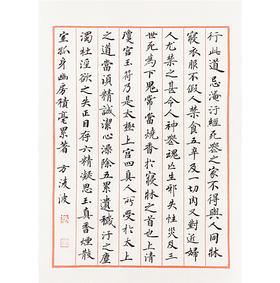 行此道忌淹汙經死喪之家不得與人同牀
寢衣服不假人禁食五辛及一切肉又對近婦
人尤禁之甚令人神喪魂亡生邪失性災及三
世死為下鬼常當燒香於寢牀之首也上清
瓊宮玉符乃是太極上宮四真人所受於太上
之道當須精誠潔心澡除五累遺穢汙之塵
濁杜淫欲之失正目存六精凝思玉真香煙散
室孤身幽房積毫累著 方波